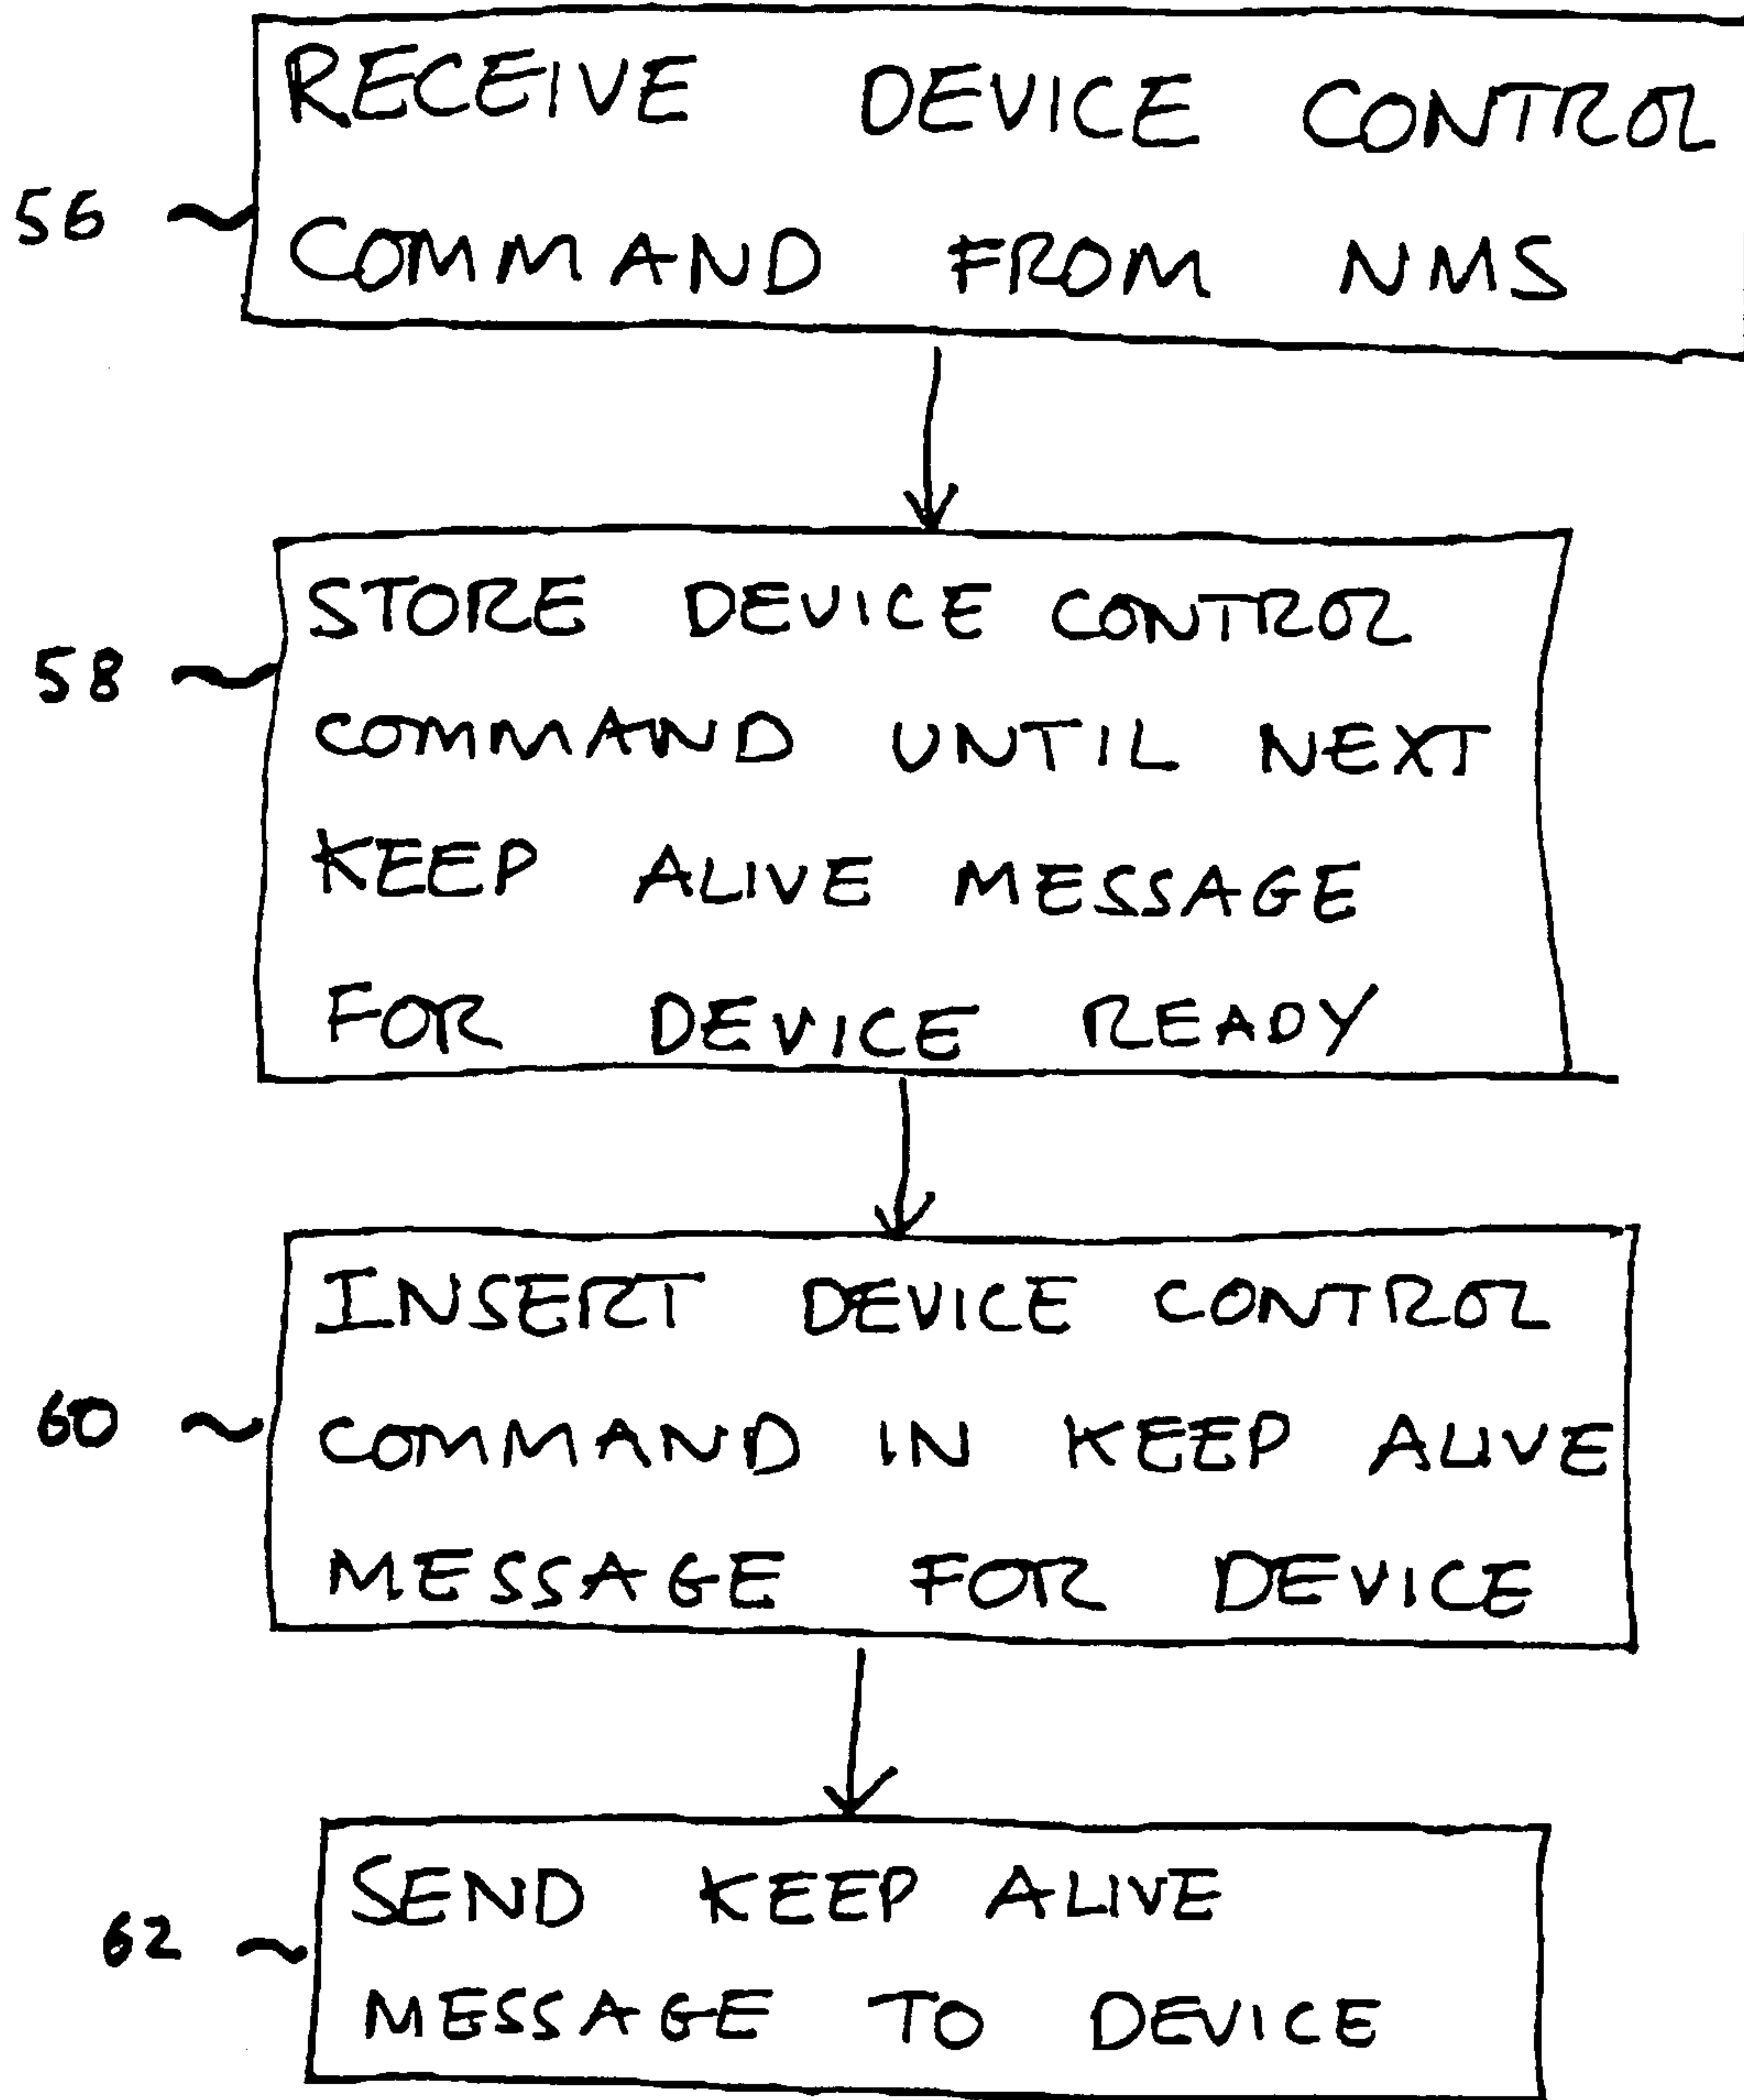 RECEIVE DEVICE CONTROL
56
COMMAND FROM NMS
STORE DEVICE CONTROL
58
COMMAND UNTIL NEXT
KEEP ALIVE MESSAGE
FOR DEVICE READY
INSERT DEVICE CONTROL
60
COMMAND IN KEEP ALIVE
MESSAGE FOR DEVICE
SEND KEEP ALIVE
62
MESSAGE TO DEVICE